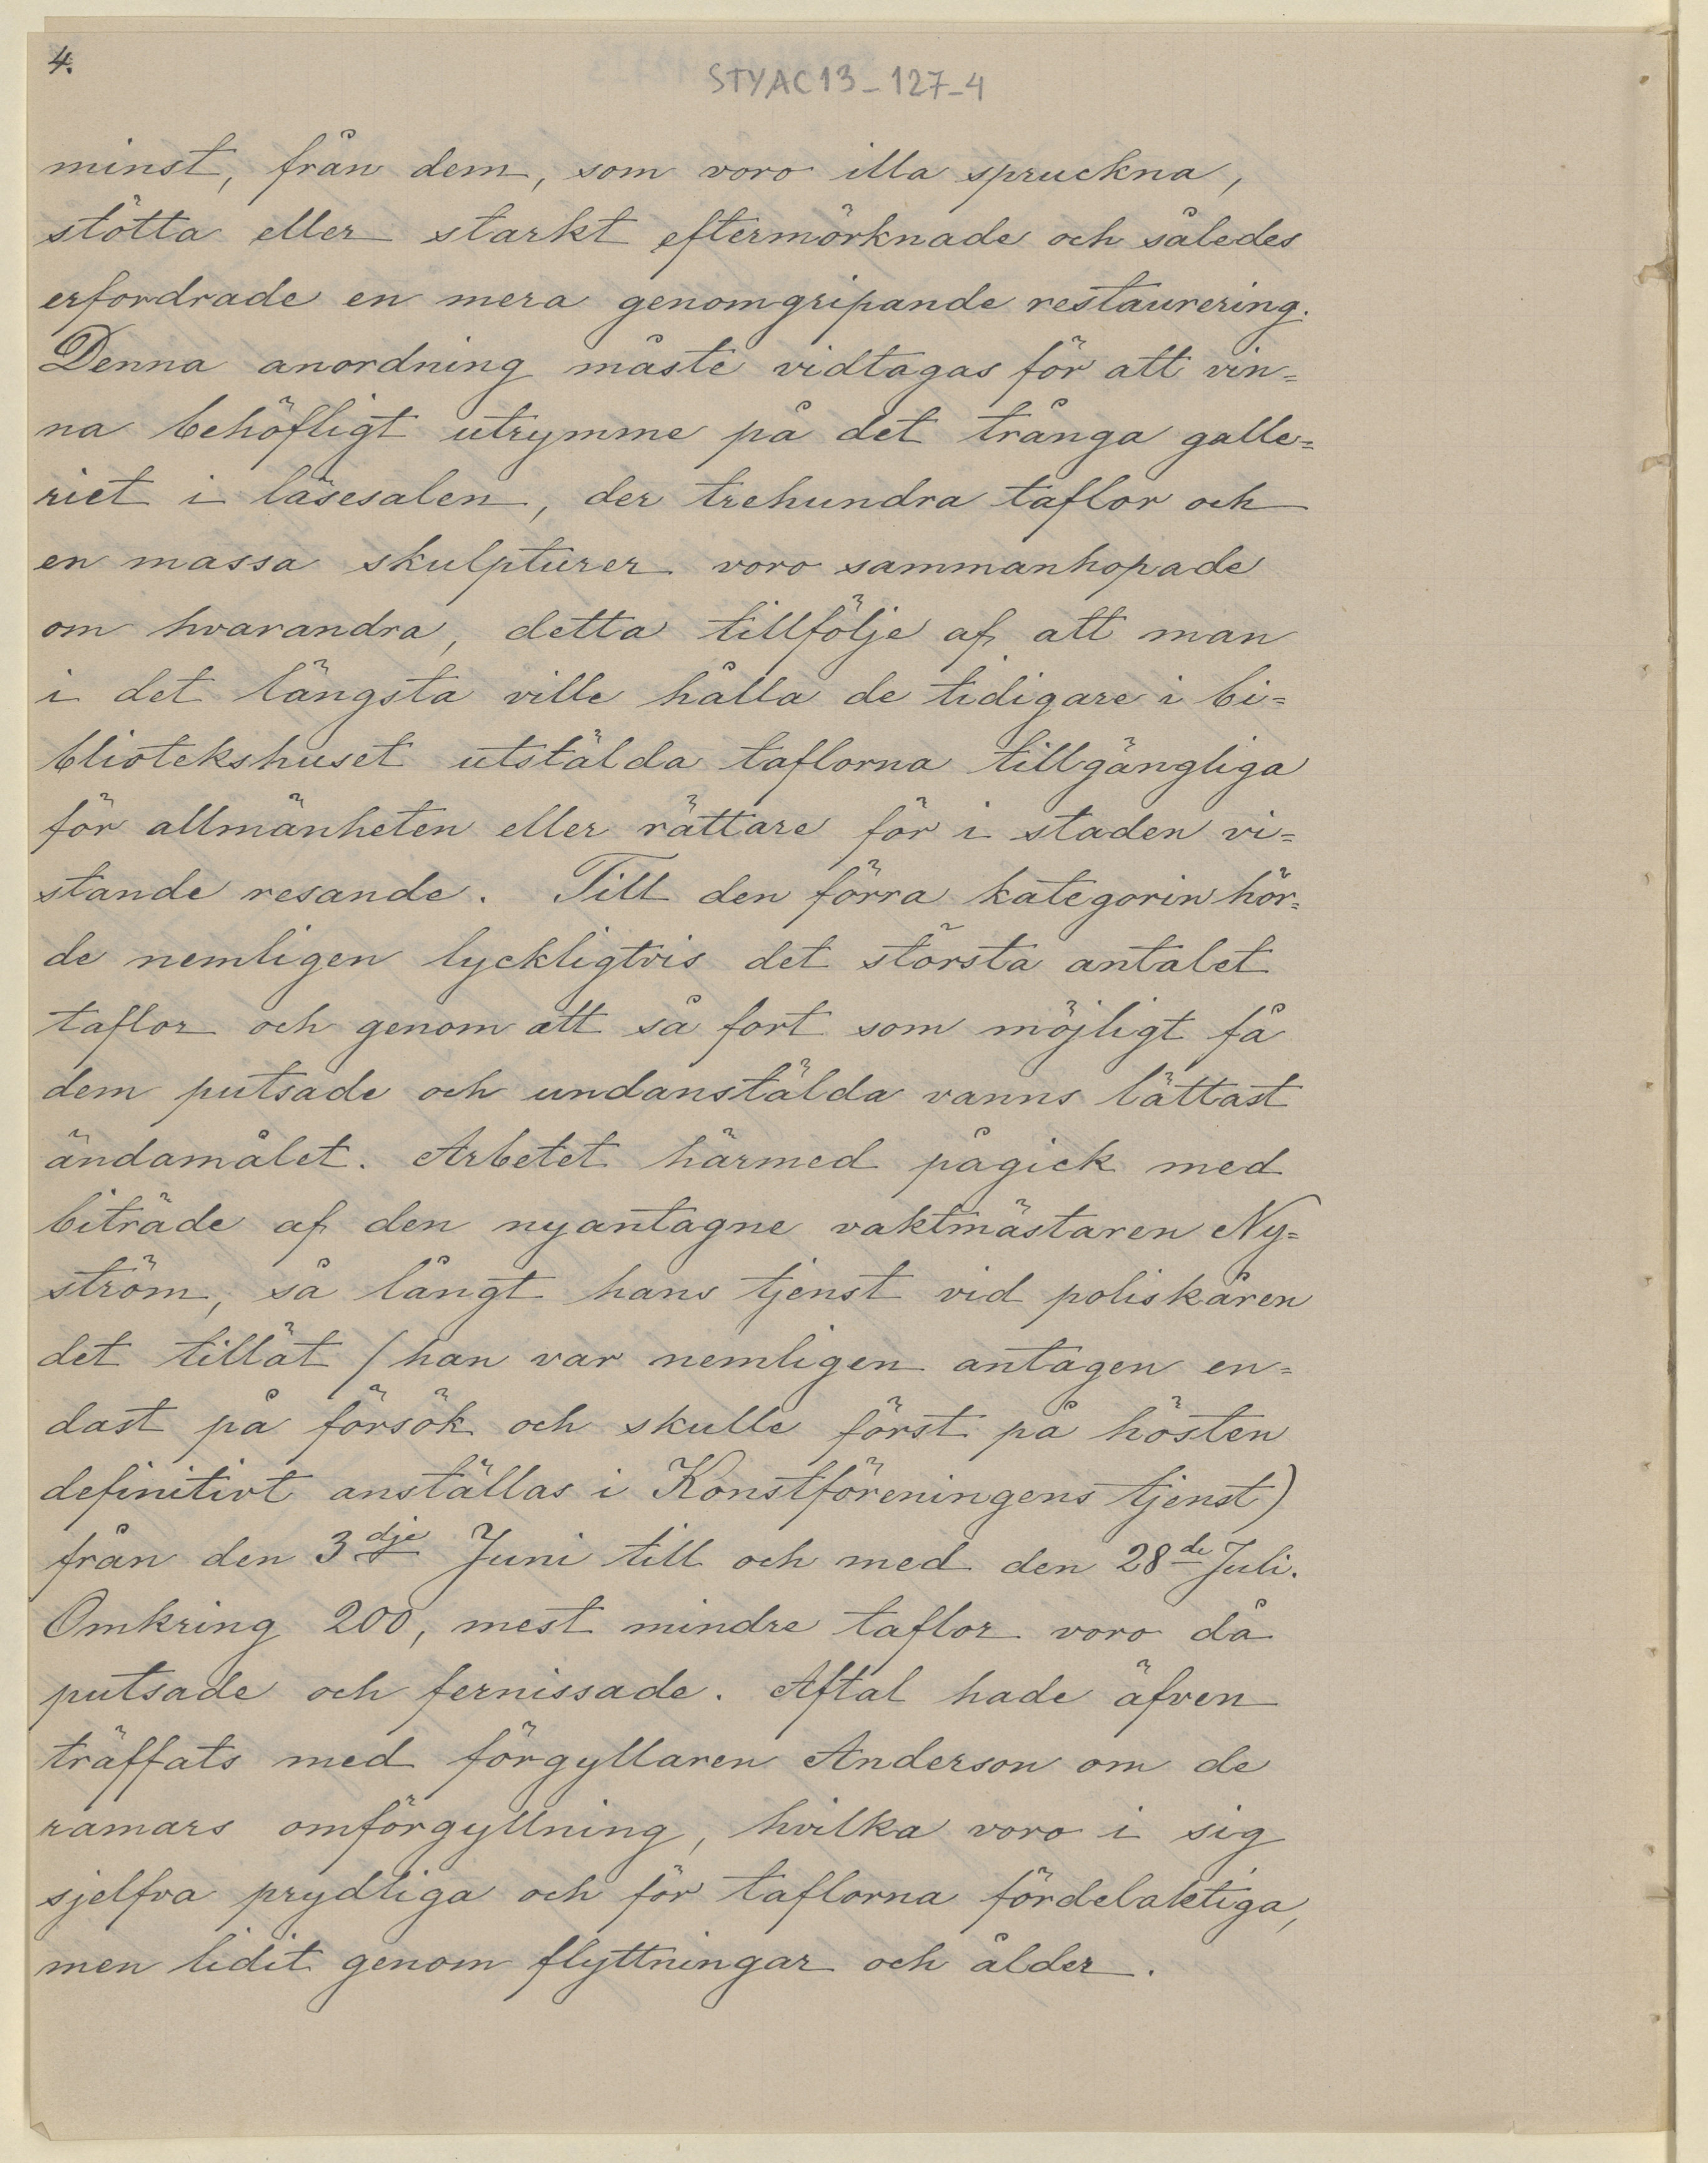 4.
STYAC13_127_4
minst, från dem, som voro illa spruckna,
stötta eller starkt eftermörknade och således
erfordrade en mera genomgripande restaurering.
Denna anordning måste vidtagas för att vin=
na behöfligt utrymme på det trånga galle=
riet i läsesalen, der trehundra taflor och
en massa skulpturer voro sammanhopade
om hvarandra, detta tillfölje af att man
i det längsta ville hålla de tidigare i bi=
bliotekshuset utstälda taflorna tillgängliga
för allmänheten eller rättare för i staden vi=
stande resande. Till den förra kategorin hör=
de nemligen lyckligtvis det största antalet
taflor och genom att så fort som möjligt få
dem putsade och undanstälda vanns lättast
ändamålet. Arbetet härmed pågick med
biträde af den nyantagne vaktmästaren Ny=
ström, så långt hans tjenst vid poliskåren
det tillät (han var nemligen antagen en=
dast på försök och skulle först på hösten
definitivt anställas i Konstföreningens tjenst)
från den 3dje Juni till och med den 28de Juli.
Omkring 200, mest mindre taflor voro då
putsade och fernissade. Aftal hade äfven
träffats med förgyllaren Anderson om de
ramars omförgyllning, hvilka voro i sig
sjelfva prydliga och för taflorna fördelaktiga,
men lidit genom flyttningar och ålder.